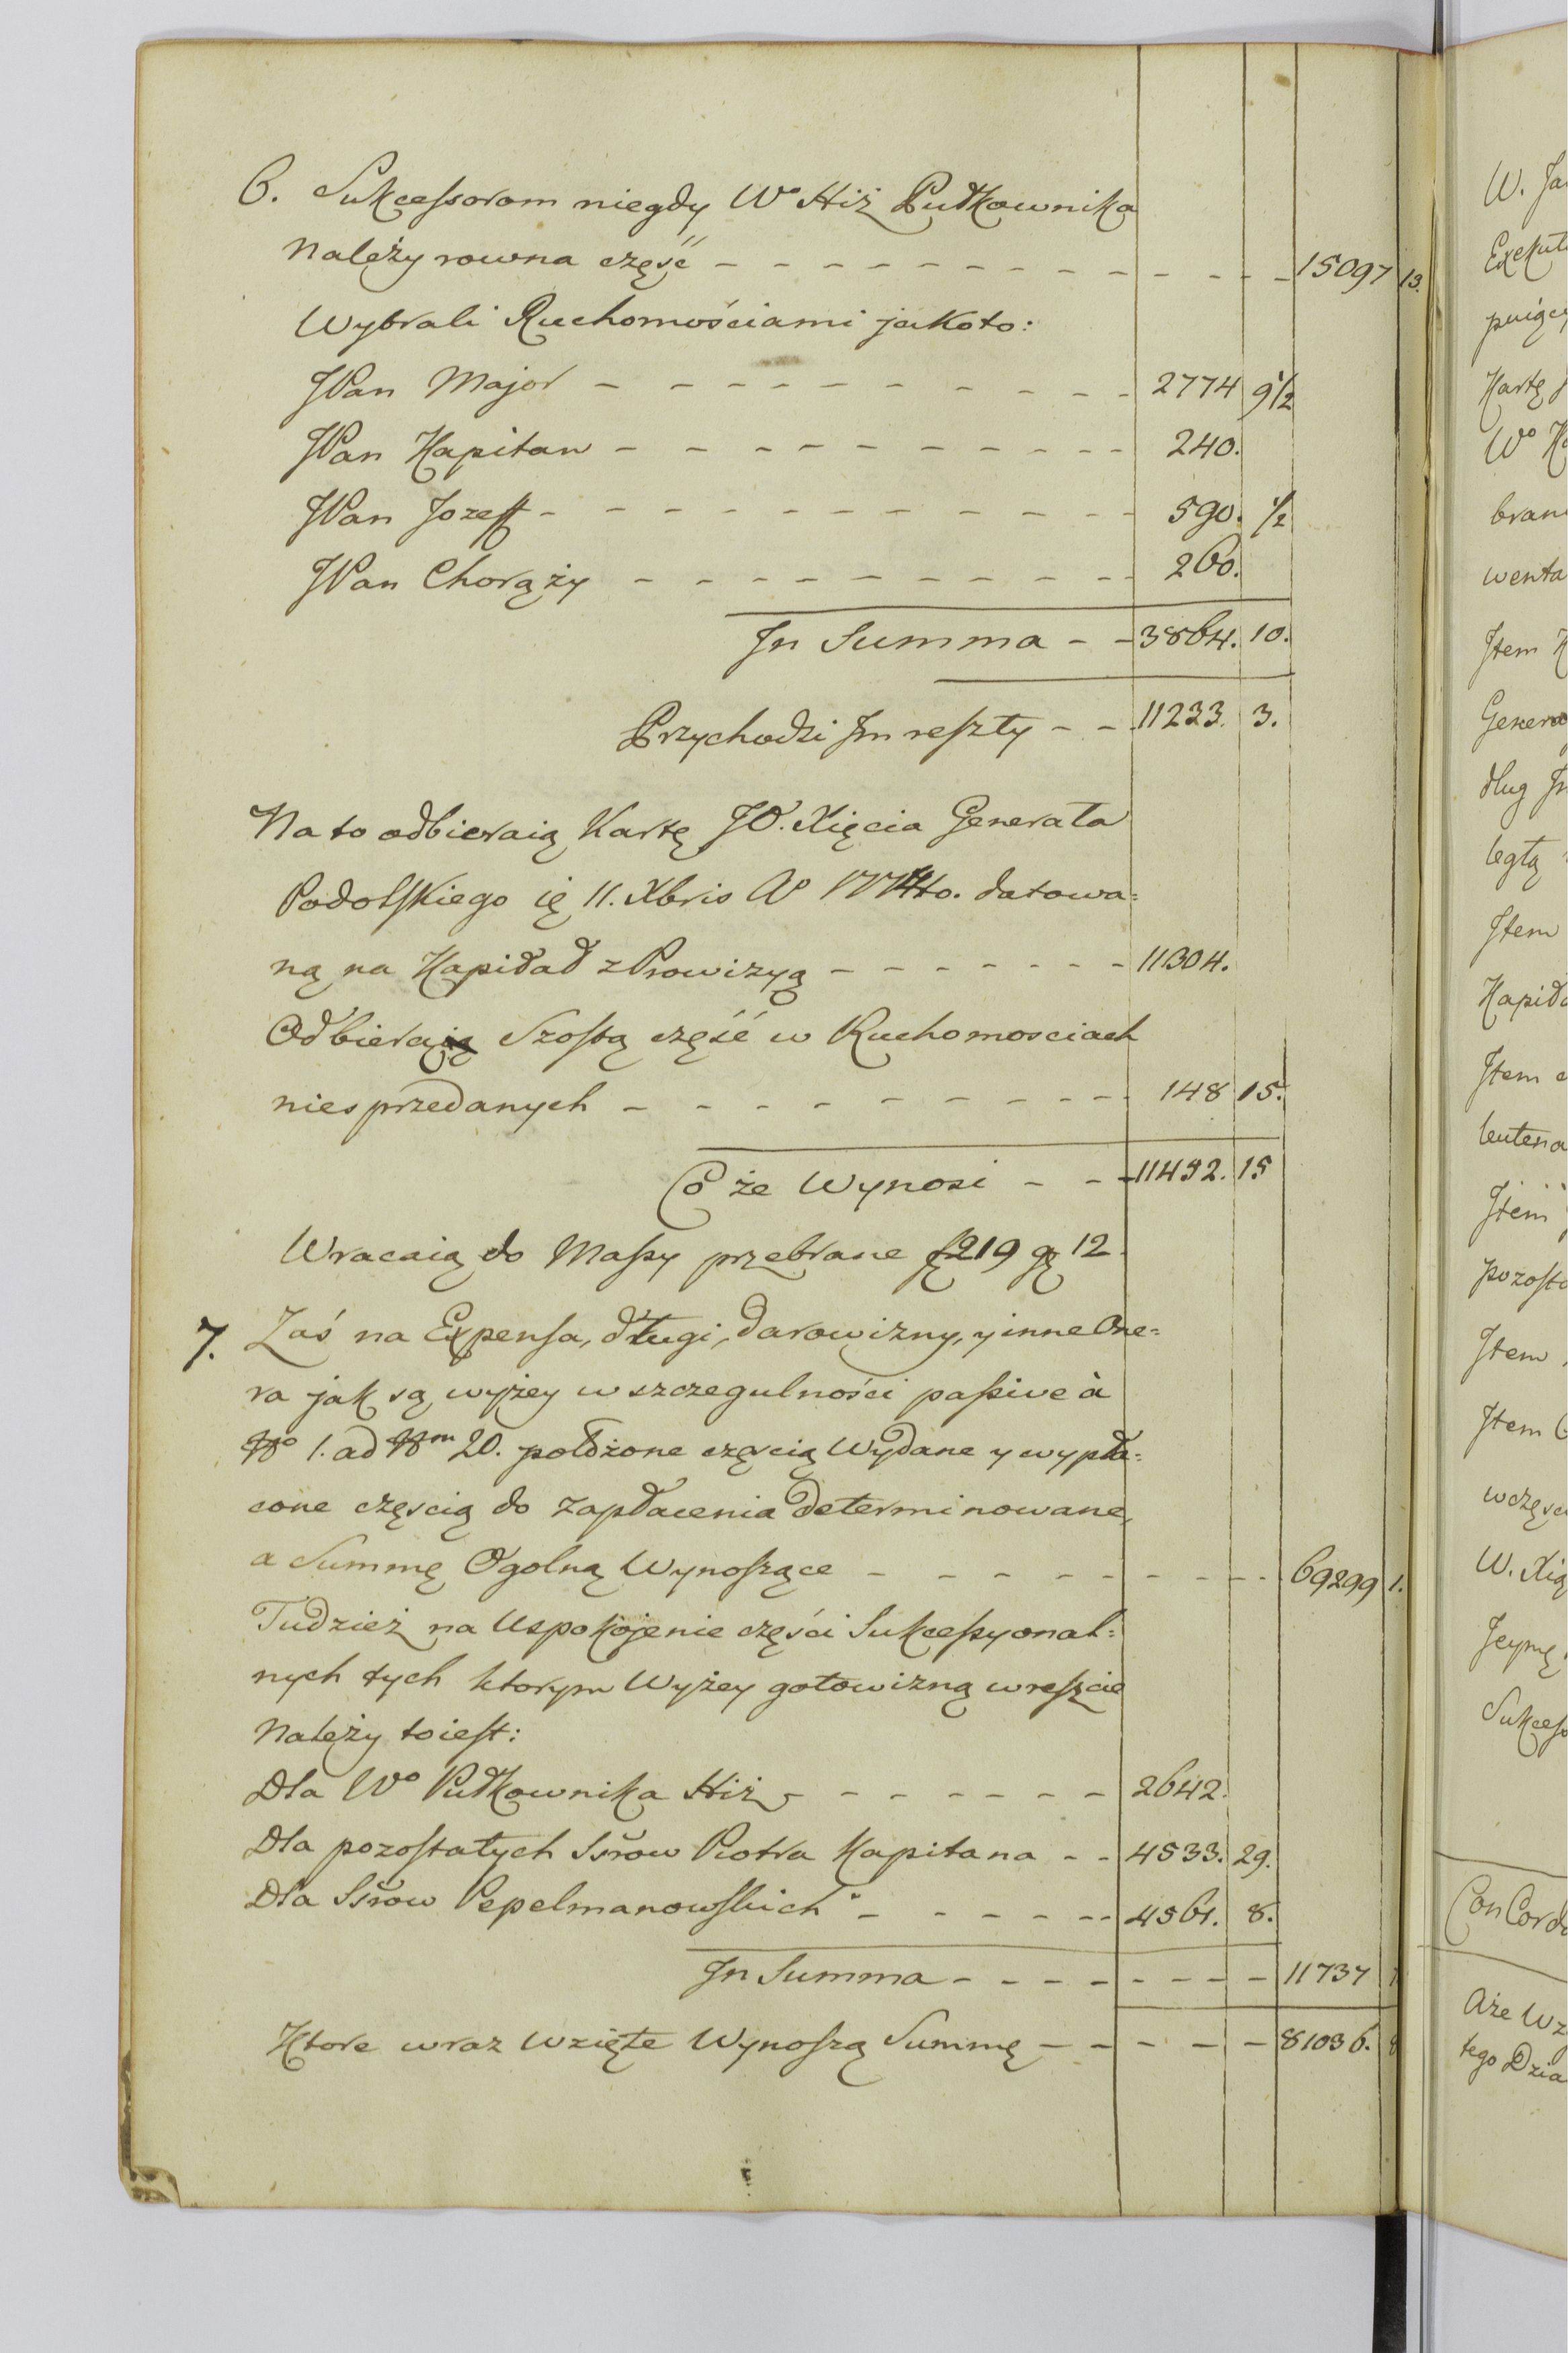 6. Sukcessorom niegdy Wo Hiż Pułkownika
Należy rowna część - - - - - - - - - - - - 15097 13.
Wybrali Ruchomościami jakoto:
JPan Major - - - - - - - - - - 2774 9 1/2
JPan Kapitan - - - - - - - - - - 240.
JPan Jozeff - - - - - - - - - - - 590. 1/2
JPan Chorąży - - - - - - - - - - 260.
Jn Summa - - 3864. 10.
Przychodzi Jm reszty - - 11233. 3.
Na to odbieraią Kartę JO. Xięcia Generała
Podolskiego ię 11. Xbris Ao 1774to. datowa=
ną na Kapitał z Prowizyą - - - - - - - 11304.
Odbieraią Szostą część w Ruchomosciach
niesprzedanych - - - - - - - - - - 148 15.
Co że Wynosi - - - 11452. 15
Wracaią do Massy przebrane f 219 gr 12
7. Zaś na Expensa, długi, darowizny, y inne One=
ra jak są wyżey w szczegulności passive à
No 1. ad Nm 20. położone częscią Wydane y wypła=
cone częscią do zapłacenia determinowane,
a Summę Ogolną Wynoszące - - - - - - - - 69299 1.
Tudzież na Uspokojenie części Sukcessyonal=
nych tych ktorym Wyżey gotowizną w reszcie
Należy toiest:
Dla Wo Pułkownika Hiż - - - - - - - 2642.
Dla pozostałych Ssrow Piotra Kapitana - - 4533. 29.
Dla Ssrow Pepelmanowskich - - - - - - 4561. 8.
Jn Summa - - - - - - - - 11737
Ktore wraz wzięte Wynoszą Summę - - - - - 81036.
W. Ja
Exekut
puiąc
Kartę
Wo
bran
wenta
Jtem
Genera
dług
ległą
Jtem
Kapita
Jtem
leutena
Jtem
pozosta
Jtem
Jtem
wczęsc
W. Xią
Jeymę
Sukcesso
Concorda
Aże Wz
tego Dzia